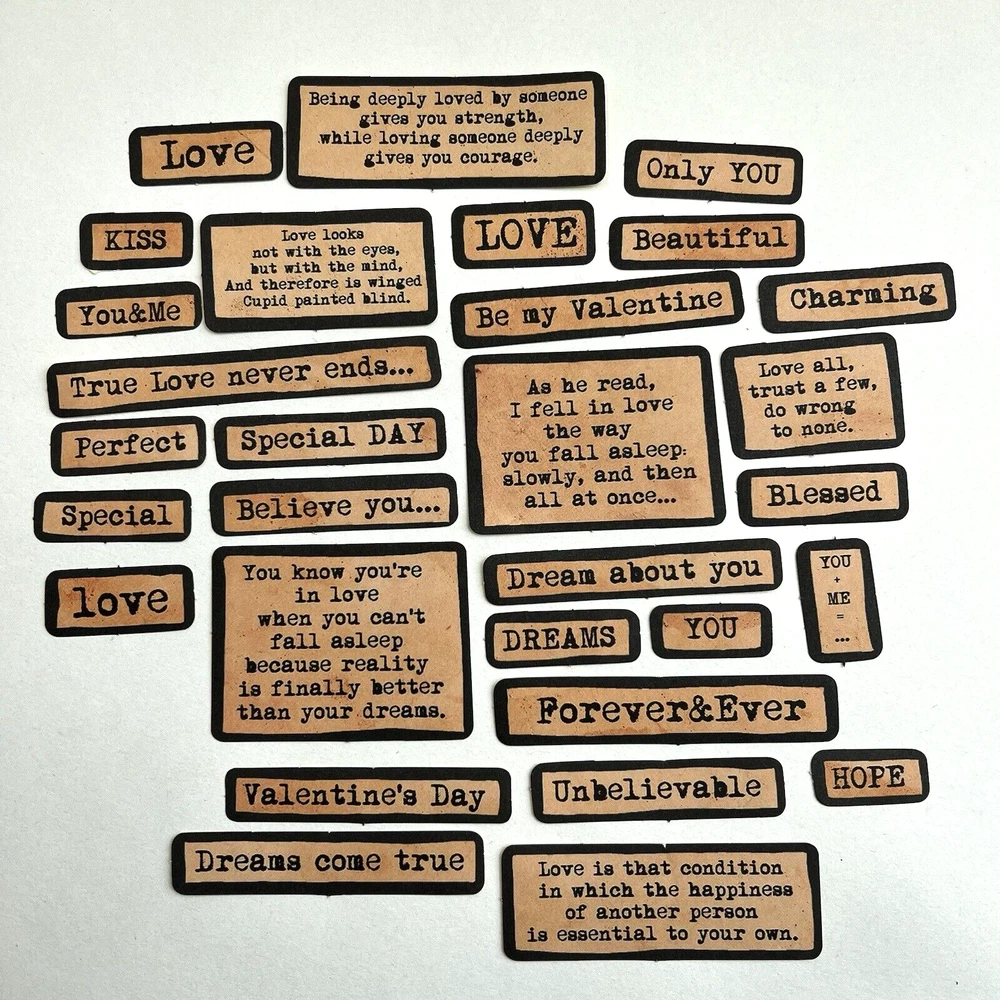 Love
Being deeply loved by someone
gives you strength,
while loving someone deeply
gives you courage.
Only YOU
KISS
Love looks
not with the eyes,
but with the mind,
And therefore is winged
Cupid painted blind.
LOVE
Beautiful
You&Me
Be my Valentine
Charming
True Love never ends...
As he read,
I fell in love
the way
you fall asleep:
slowly, and then
all at once...
Love all,
trust a few,
do wrong
to none.
Perfect
Special DAY
Special
Believe you...
Blessed
love
You know you're
in love
when you can't
fall asleep
because reality
is finally better
than your dreams.
Dream about you
YOU
+
ME
=
...
DREAMS
YOU
Forever&Ever
Valentine's Day
Unbelievable
HOPE
Dreams come true
Love is that condition
in which the happiness
of another person
is essential to your own.